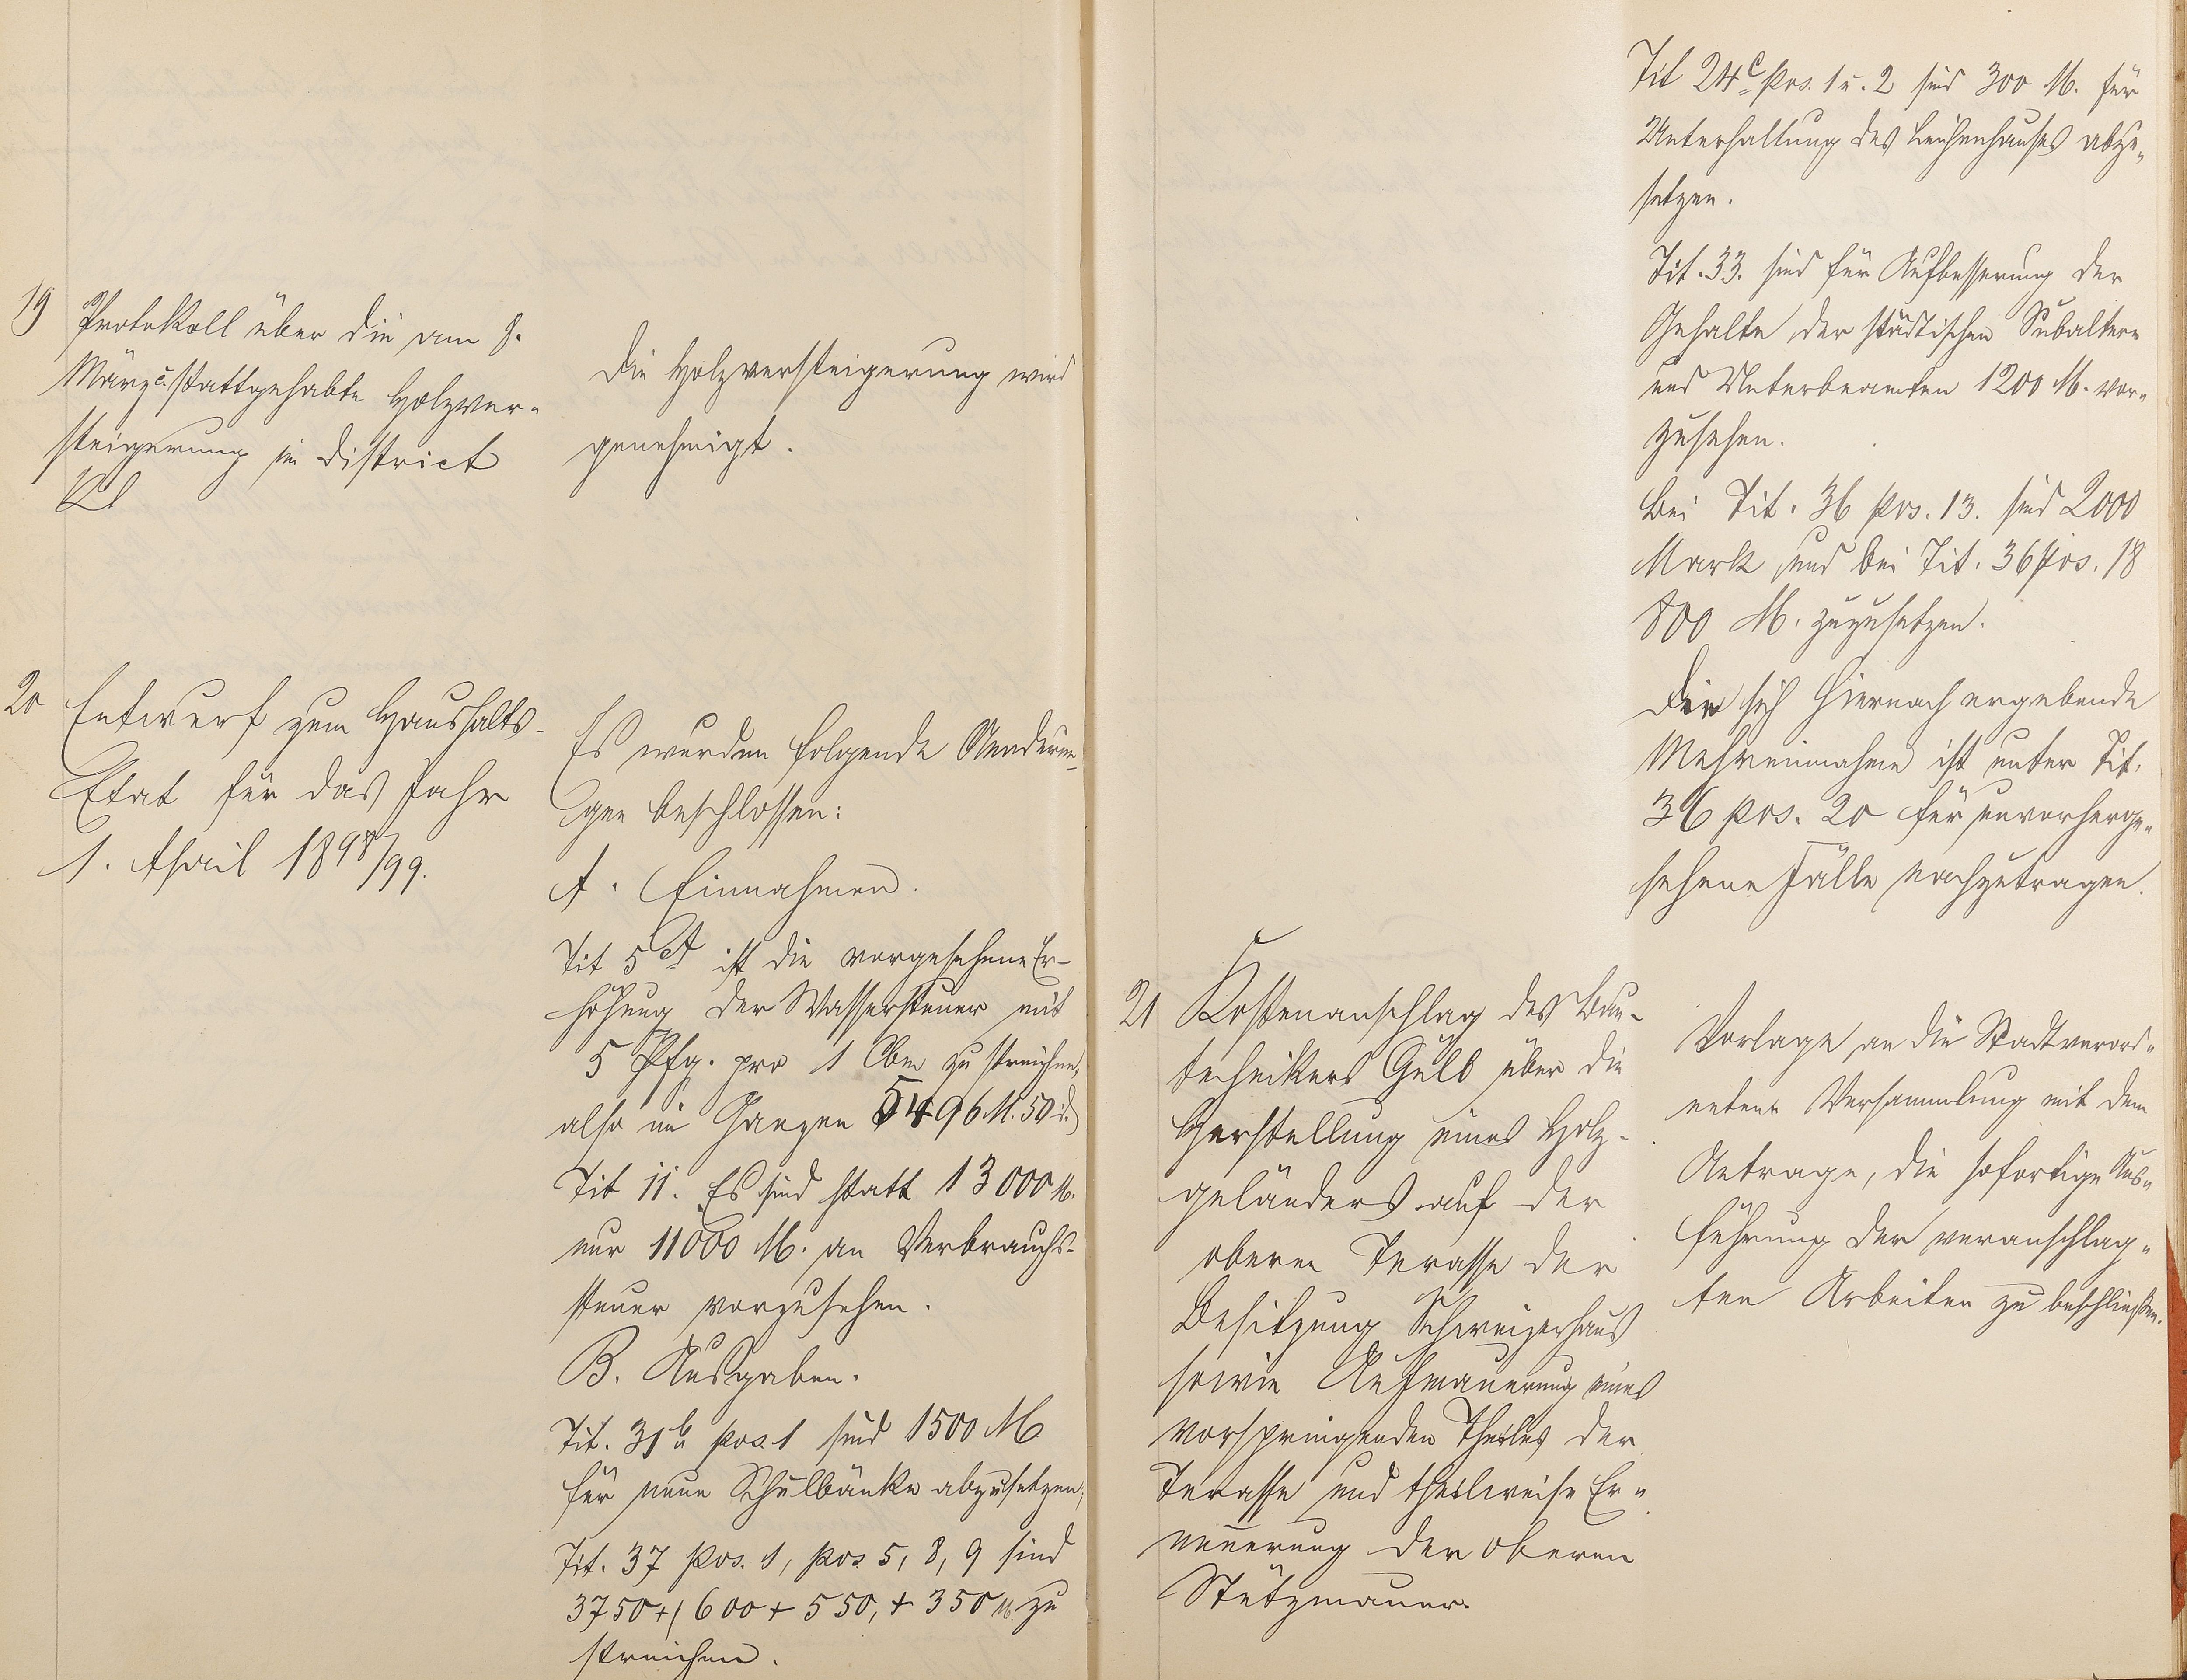 19
Protokoll über die am 8.
März c. stattgehabte Holzver-
steigerung im District
Die Holzversteigerung wird
genehmigt.
20
Entwurf zum Haushalts-
Etat für das Jahr
1. April 1898/99.
Es wurden folgende Aenderun-
gen beschlossen:
A. Einnahmen.
Tit 5 A ist die vorgesehene Er-
höhung der Wassersteuer mit
5 Pfg. pro 1 Cbm zu streichen,
also im Ganzen 5496 M. 50 d.
Tit 11. Es sind statt 13000 M.
nur 11000 M. an Verbrauchs-
steuer vorzusehen.
B. Ausgaben.
Tit. 31 b pos. 1 sind 1500 M
für neue Schulbänke abzusetzen,
Tit. 37 Pos. 1, pos 5, 8, 9 sind
3750 + 1600 + 550, + 350 M. zu
streichen.
Tit 24 c pos. 1 u. 2 sind 300 M. für
Unterhaltung des Leichenhauses abzu-
setzen.
Tit. 33. sind für Aufbesserung der
Gehalte der städtischen Subaltern
und Unterbeamten 1200 M. vor-
zusehen.
Bei Tit. 36 pos. 13. sind 2000
Mark und bei Tit. 36 pos. 18
800 M. zuzusetzen.
Die sich hiernach ergebende
Mehreinnahme ist unter Tit.
36 pos. 20 für unvorherge-
sehene Fälle nachzutragen.
21
Kostenanschlag des Bau-
technikers Gülb über die
Herstellung eines Holz-
geländers auf der
oberen Terasse der
Besitzung Schweizerhaus
sowie Aufmauerung eines
vorspringenden Theiles der
Terasse und theilweise Er-
neuerung der oberen
Stützmauer.
Vorlage an die Stadtverord-
neten Versammlung mit dem
Antrage, die sofortige Aus-
führung der veranschlag-
ten Arbeiten zu beschließen.